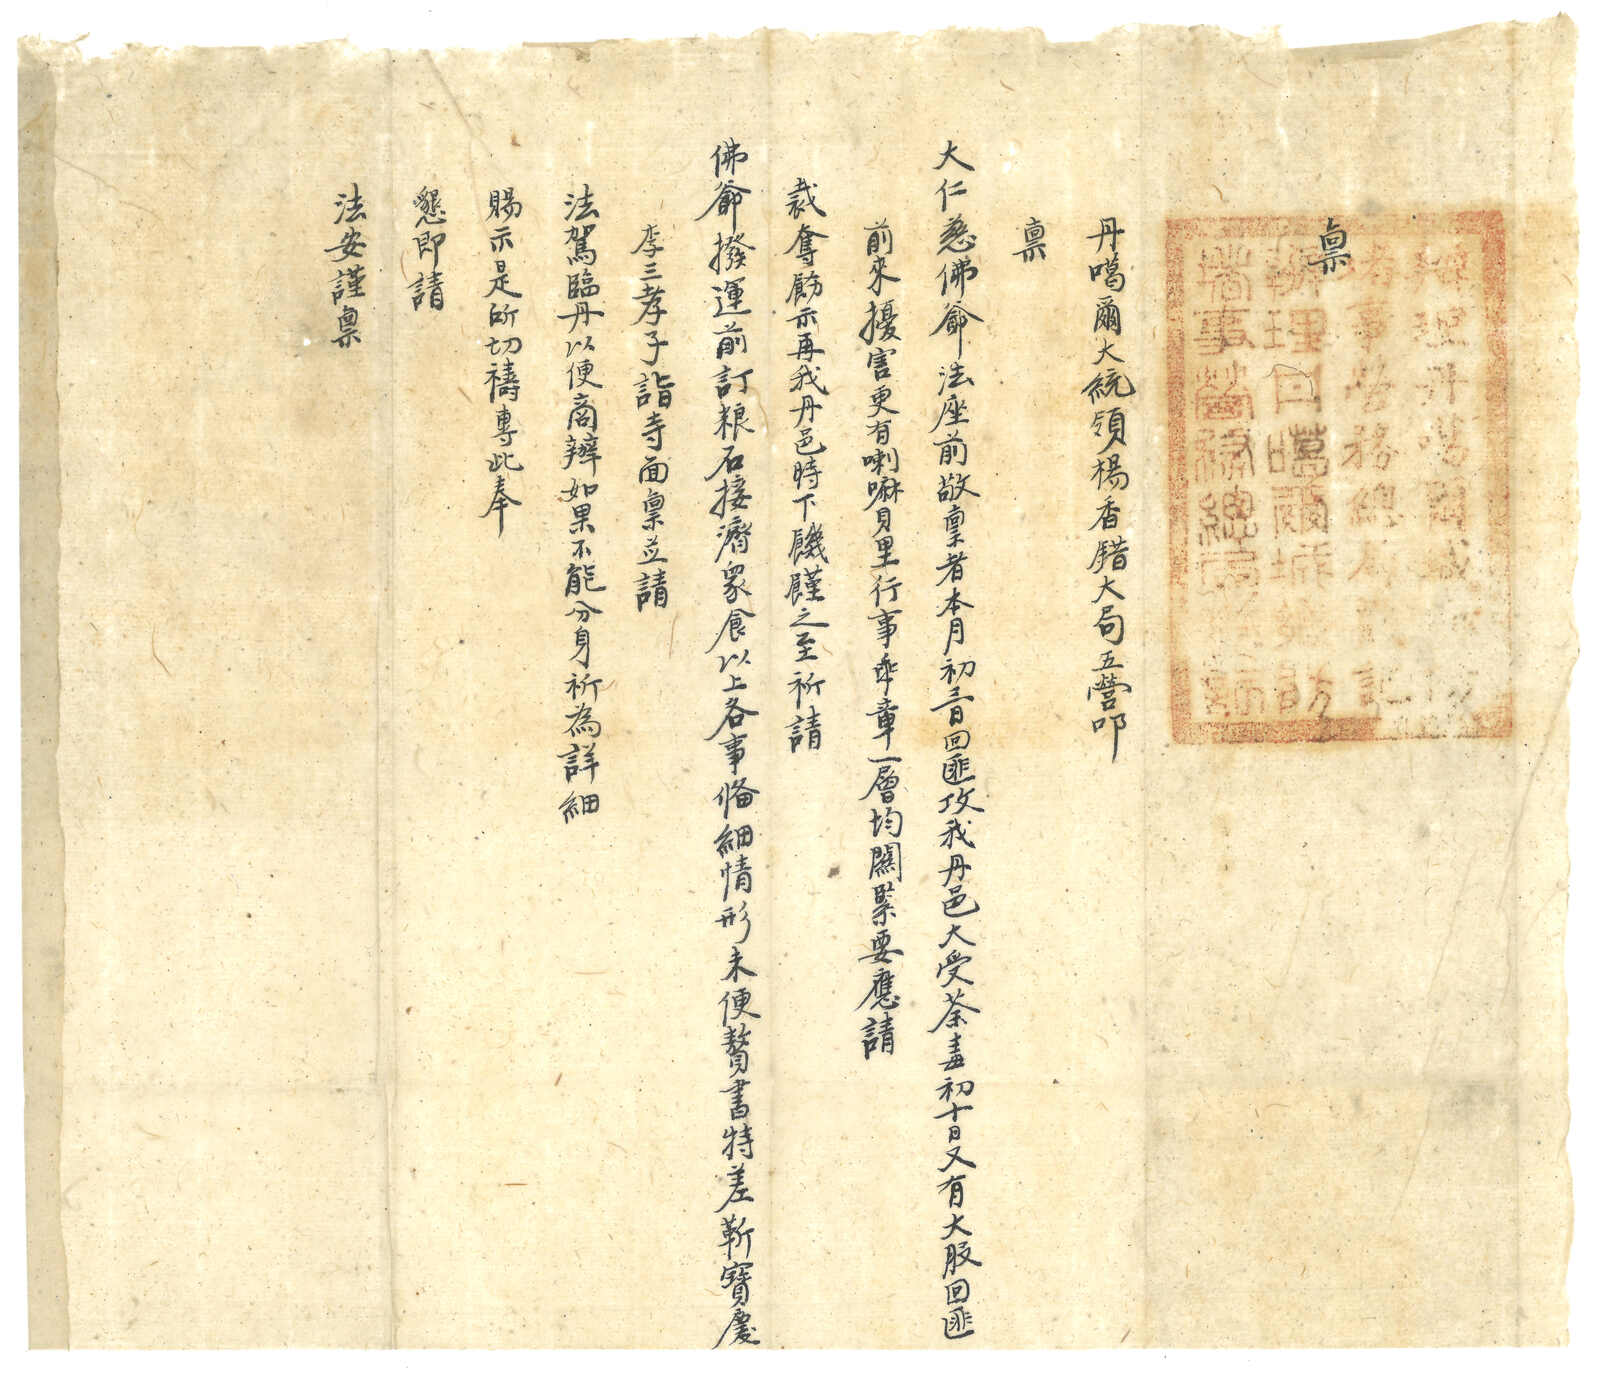 稟
丹噶爾大統領楊香錯大局五營叩
稟
大仁慈佛爺法座前敬稟者本月初三日回匪攻我丹邑大受荼毒初十日又有大股回匪
前來擾害更有喇嘛貝里行事乖章一層均關緊要應請
裁奪飭示再我丹邑時下饑饉之至祈請
佛爺撥運前訂粮石接濟眾食以上各事俻細情形未便贅書特差靳寶慶
李三孝子詣寺面稟並請
法駕臨丹以便商辦如果不能分身祈為詳細
賜示是所切禱專此奉
懇即請
法安謹稟